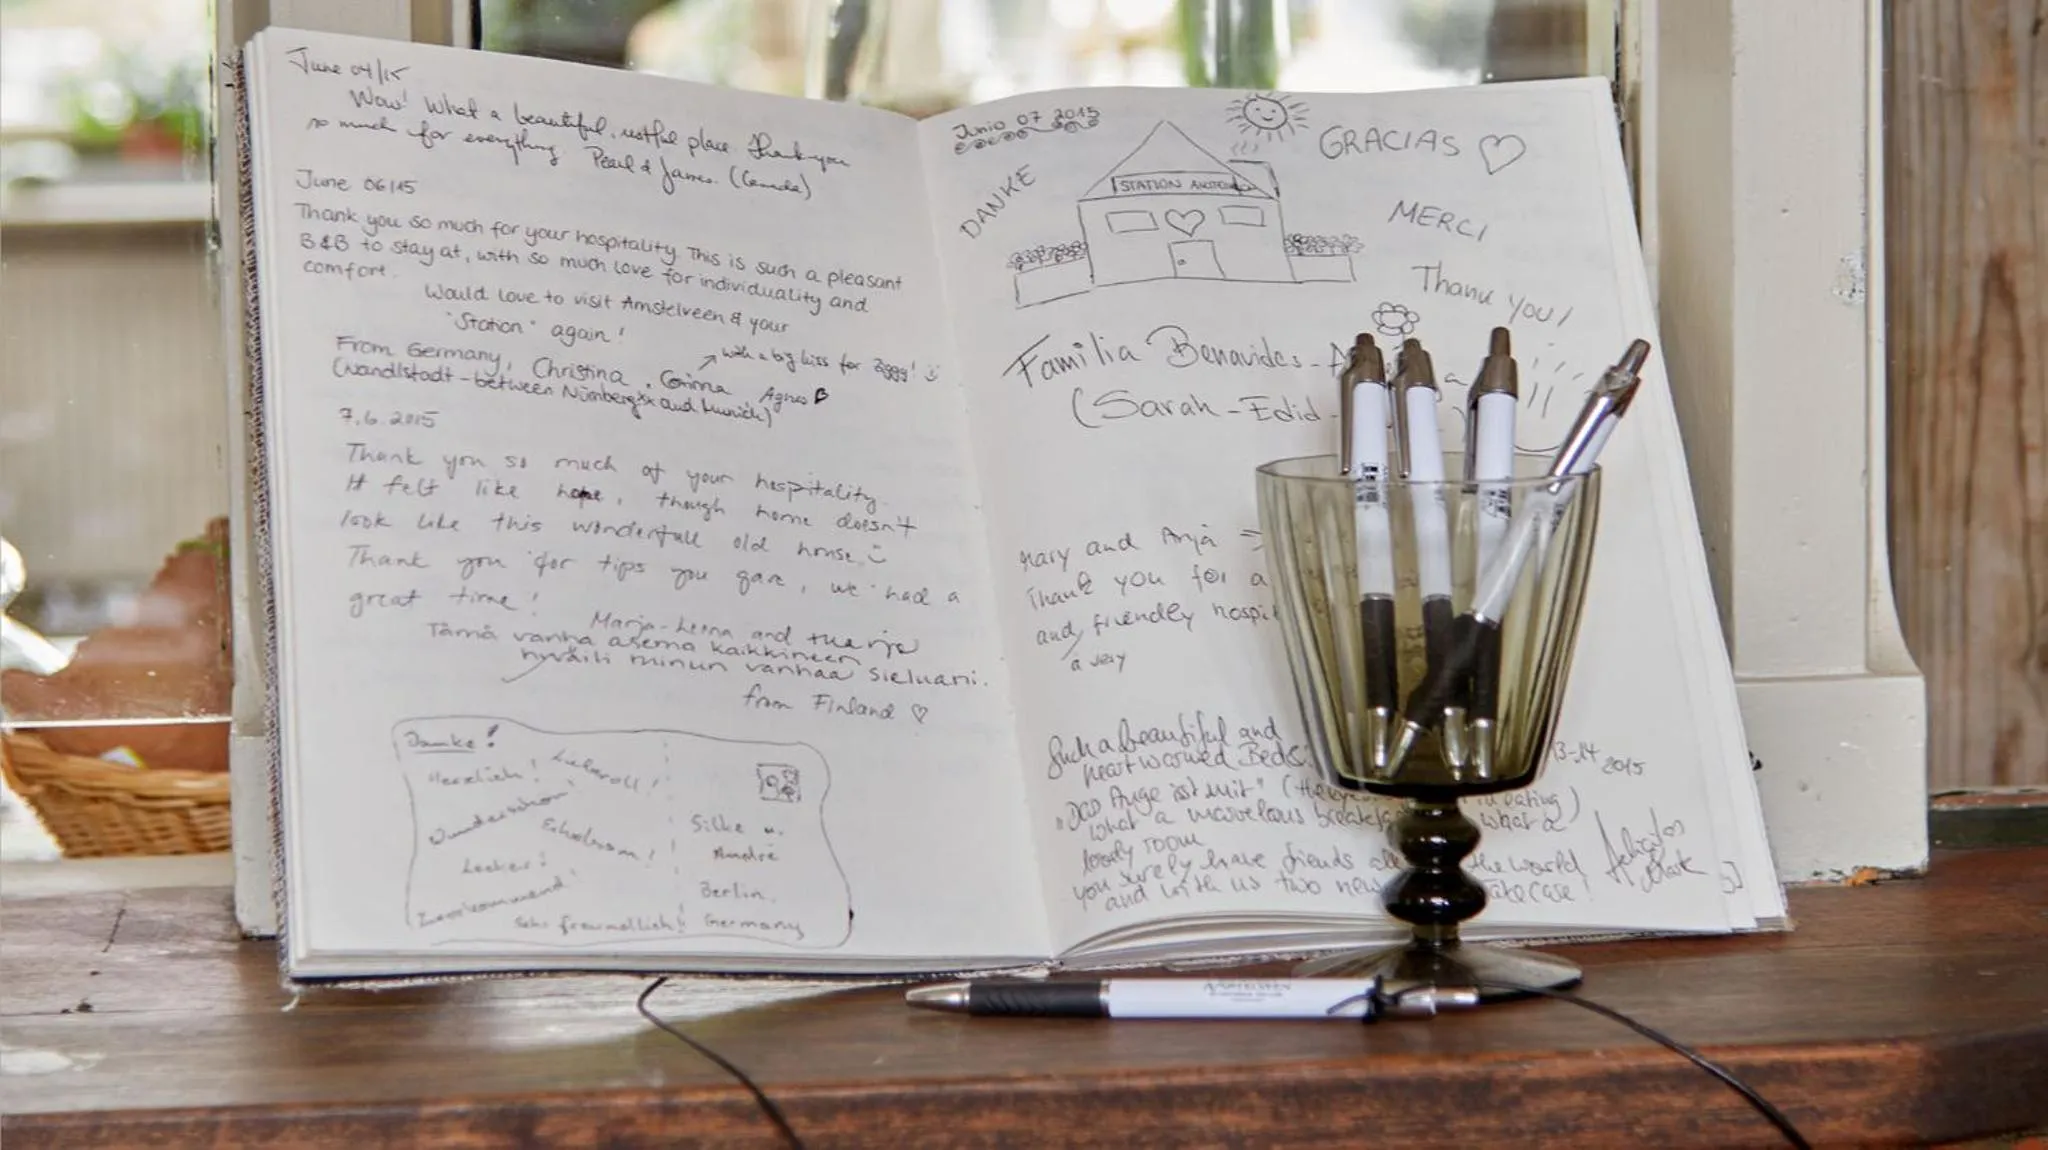 June 04/15
Wow! What a beautiful, restful place. Thank you
so much for everything. Pearl & James. (Canada)
June 06/15
Thank you so much for your hospitality. This is such a pleasant
B&B to stay at, with so much love for individuality and
comfort.
Would love to visit Amstelveen & your
"Station" again!
with a big kiss for Ziggy!
From Germany, Christina, Corinna Agnes
(Wandlstadt - between Nürnberg and Munich)
7.6.2015
Thank you so much of your hospitality.
It felt like home, though home doesn't
look like this wonderfull old house.
Thank you for tips you gave, we had a
great time!
Marja-Leena and
Tämä vanha asema kaikkineen
hyväili minun vanhaa sieluani.
from Finland
Danke!
Herzlich! Liebevoll!
Wunderschön!
Erholsam!
Lecker!
Sehr freundlich!!
Silke u.
André
Berlin.
Germany
Junio 07 2015
DANKE
STATION
GRACIAS
MERCI
Thank you!
Familia Benavides-
(Sarah-Edid-
Mary and Anja
Thank you for a
and friendly
a very
Such a beautiful and
heartwarmed
13-14 2015
"Das Auge isst mit" eating)
what a marvelous what a
lovely room
you surely have friends the world
and with us two new
AMSTELVEEN